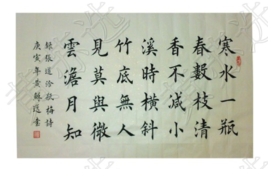 寒水一瓶
春數枝清
香不減小
溪時橫斜
竹底無人
見莫與微
雲澹月知
錄張道洽瓶梅詩
庚寅年黃蘇書